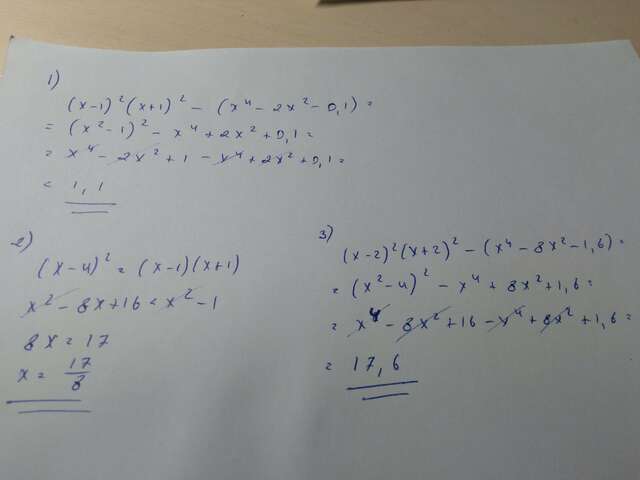 1)
(x-1)²(x+1)² - (x⁴ - 2x² - 0,1) =
= (x²-1)² - x⁴ + 2x² + 0,1 =
= x⁴ - 2x² + 1 - x⁴ + 2x² + 0,1 =
= 1,1
2)
(x-4)² = (x-1)(x+1)
x² - 8x + 16 = x² - 1
8x = 17
x = 17/8
3)
(x-2)²(x+2)² - (x⁴ - 8x² - 1,6) =
= (x²-4)² - x⁴ + 8x² + 1,6 =
= x⁴ - 8x² + 16 - x⁴ + 8x² + 1,6 =
= 17,6